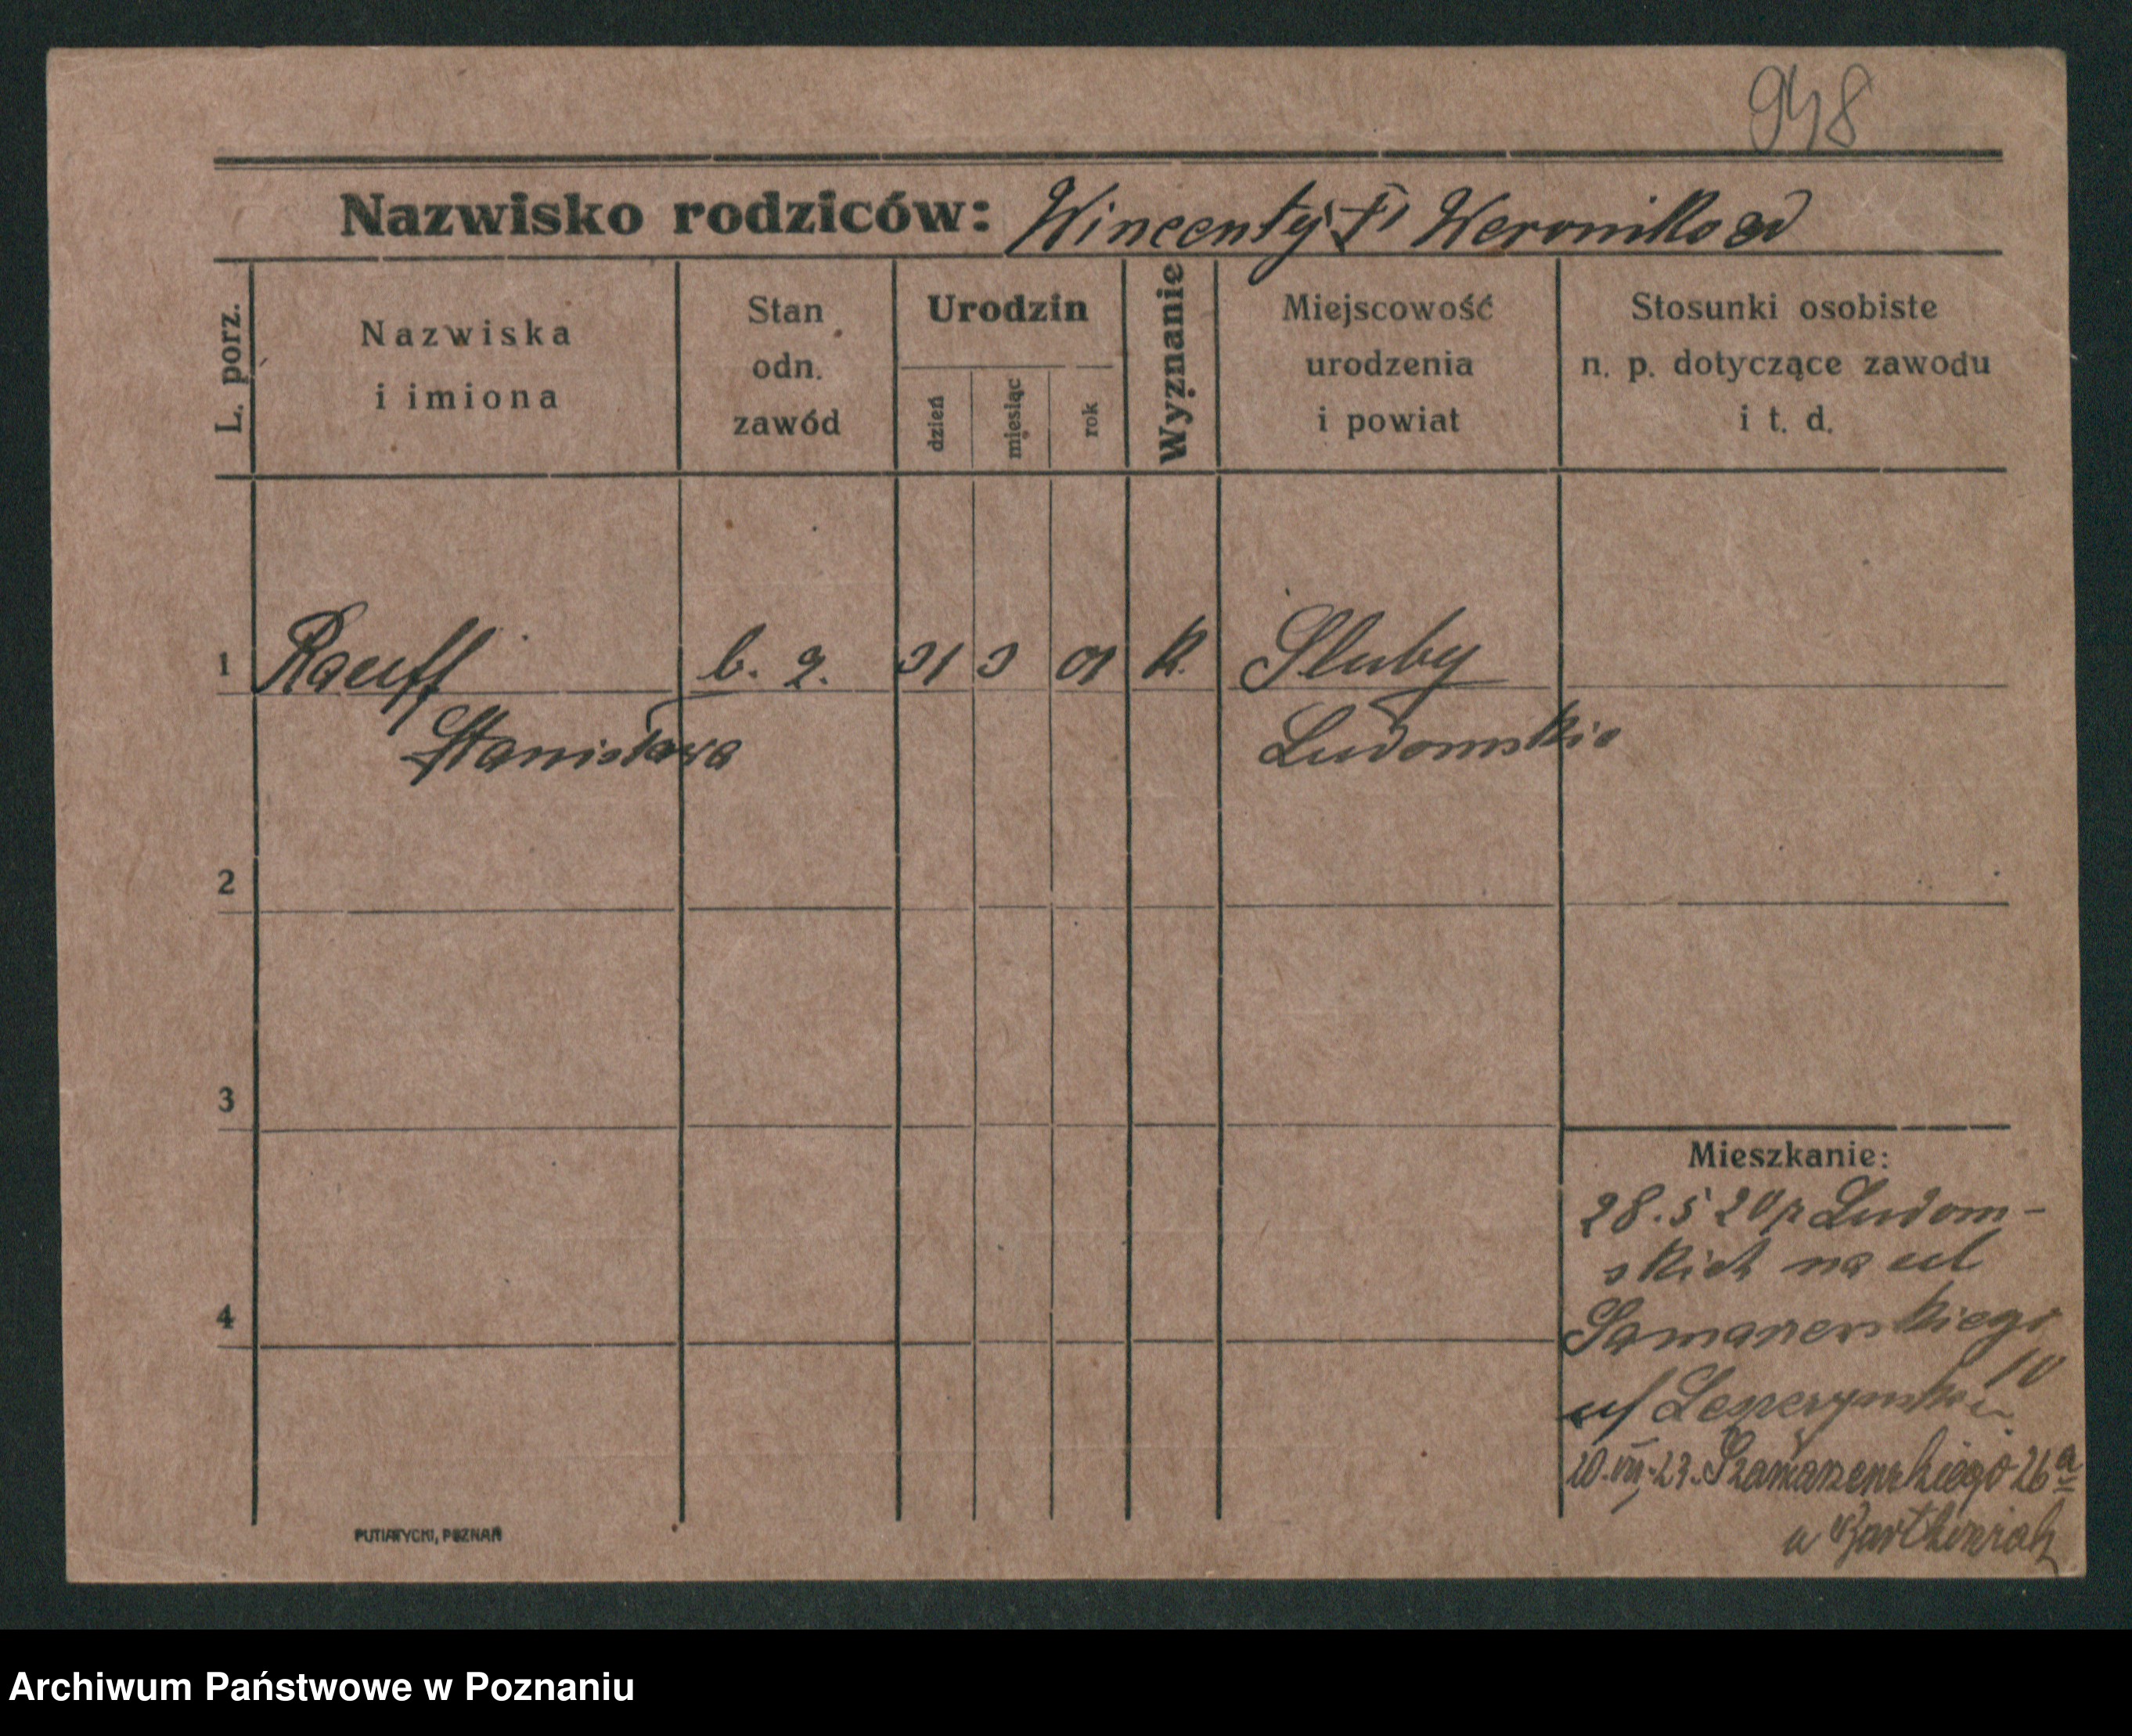 948
Nazwisko rodziców: Wincenty Weronika
L. porz.
Nazwiska
i imiona
Stan
odn.
zawód
Urodzin
dzień
miesiąc
rok
Wyznanie
Miejscowość
urodzenia
i powiat
Stosunki osobiste
n. p. dotyczące zawodu
i t. d.
1 Rauff b. 31 3 01 k. Sluby
Stanisława Ludomskie
2
3
4
Mieszkanie:
28.5 20 Ludom-
skich na ul
10
20.VII.23. 26a
u
PUTIATYCKI, POZNAŃ
Archiwum Państwowe w Poznaniu